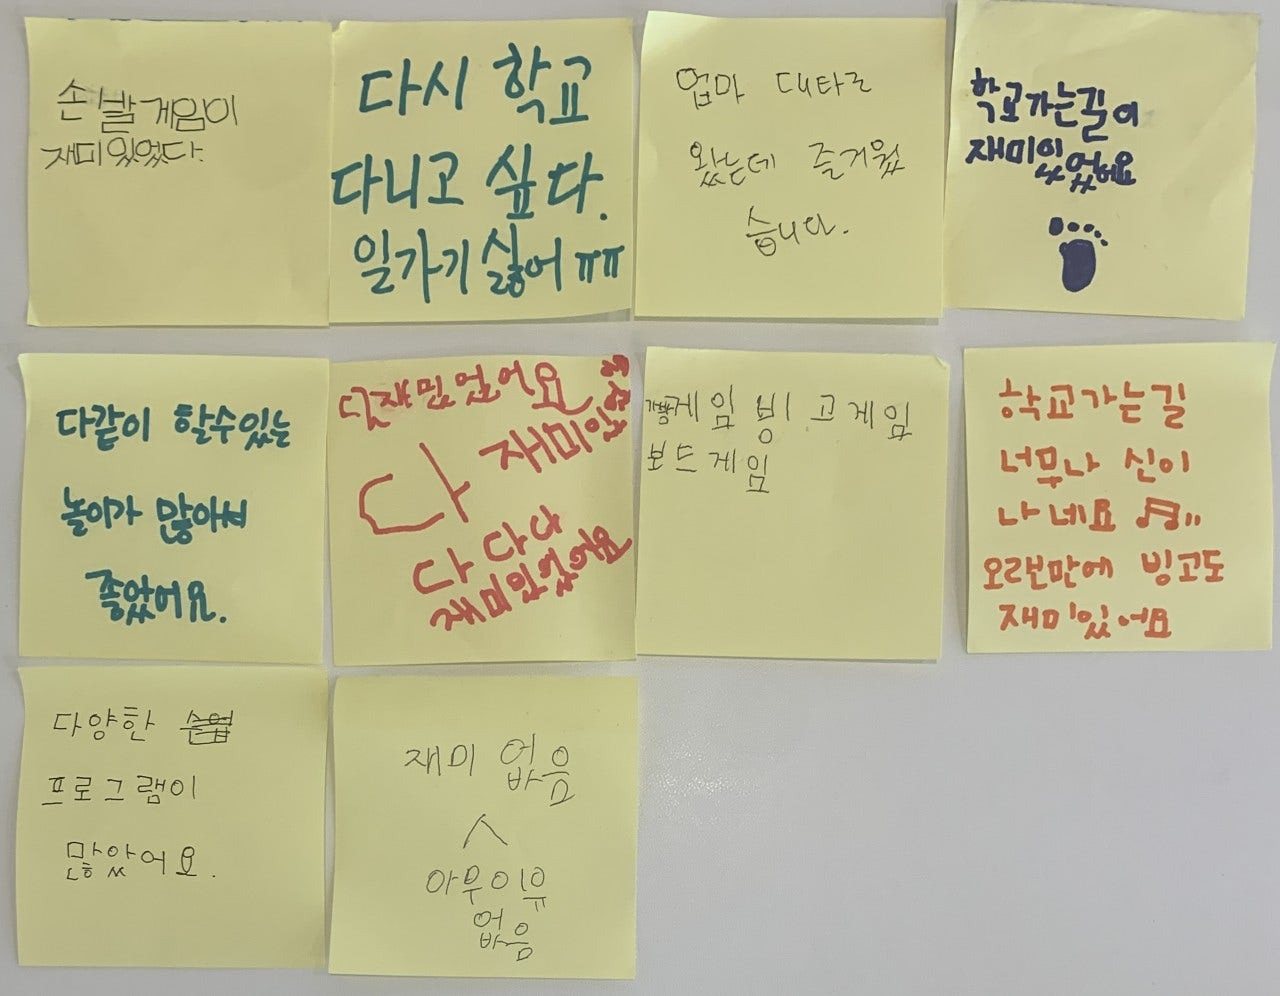 손 발 게임이
재미있었다.
다시 학교
다니고 싶다.
일가기 싫어 ㅠㅠ
엄마 대타로
왔는데 즐거웠
습니다.
학교가는길이
재미있었어요
다같이 할수있는
놀이가 많아서
좋았어요.
다재밌었어요
다 재미있
다 다다
재미있었어요
게임 빙고게임
보드게임
학교가는길
너무나 신이
나네요
오랜만에 빙고도
재미있어요
다양한
프로그램이
많았어요.
재미 없음
아무이유
없음